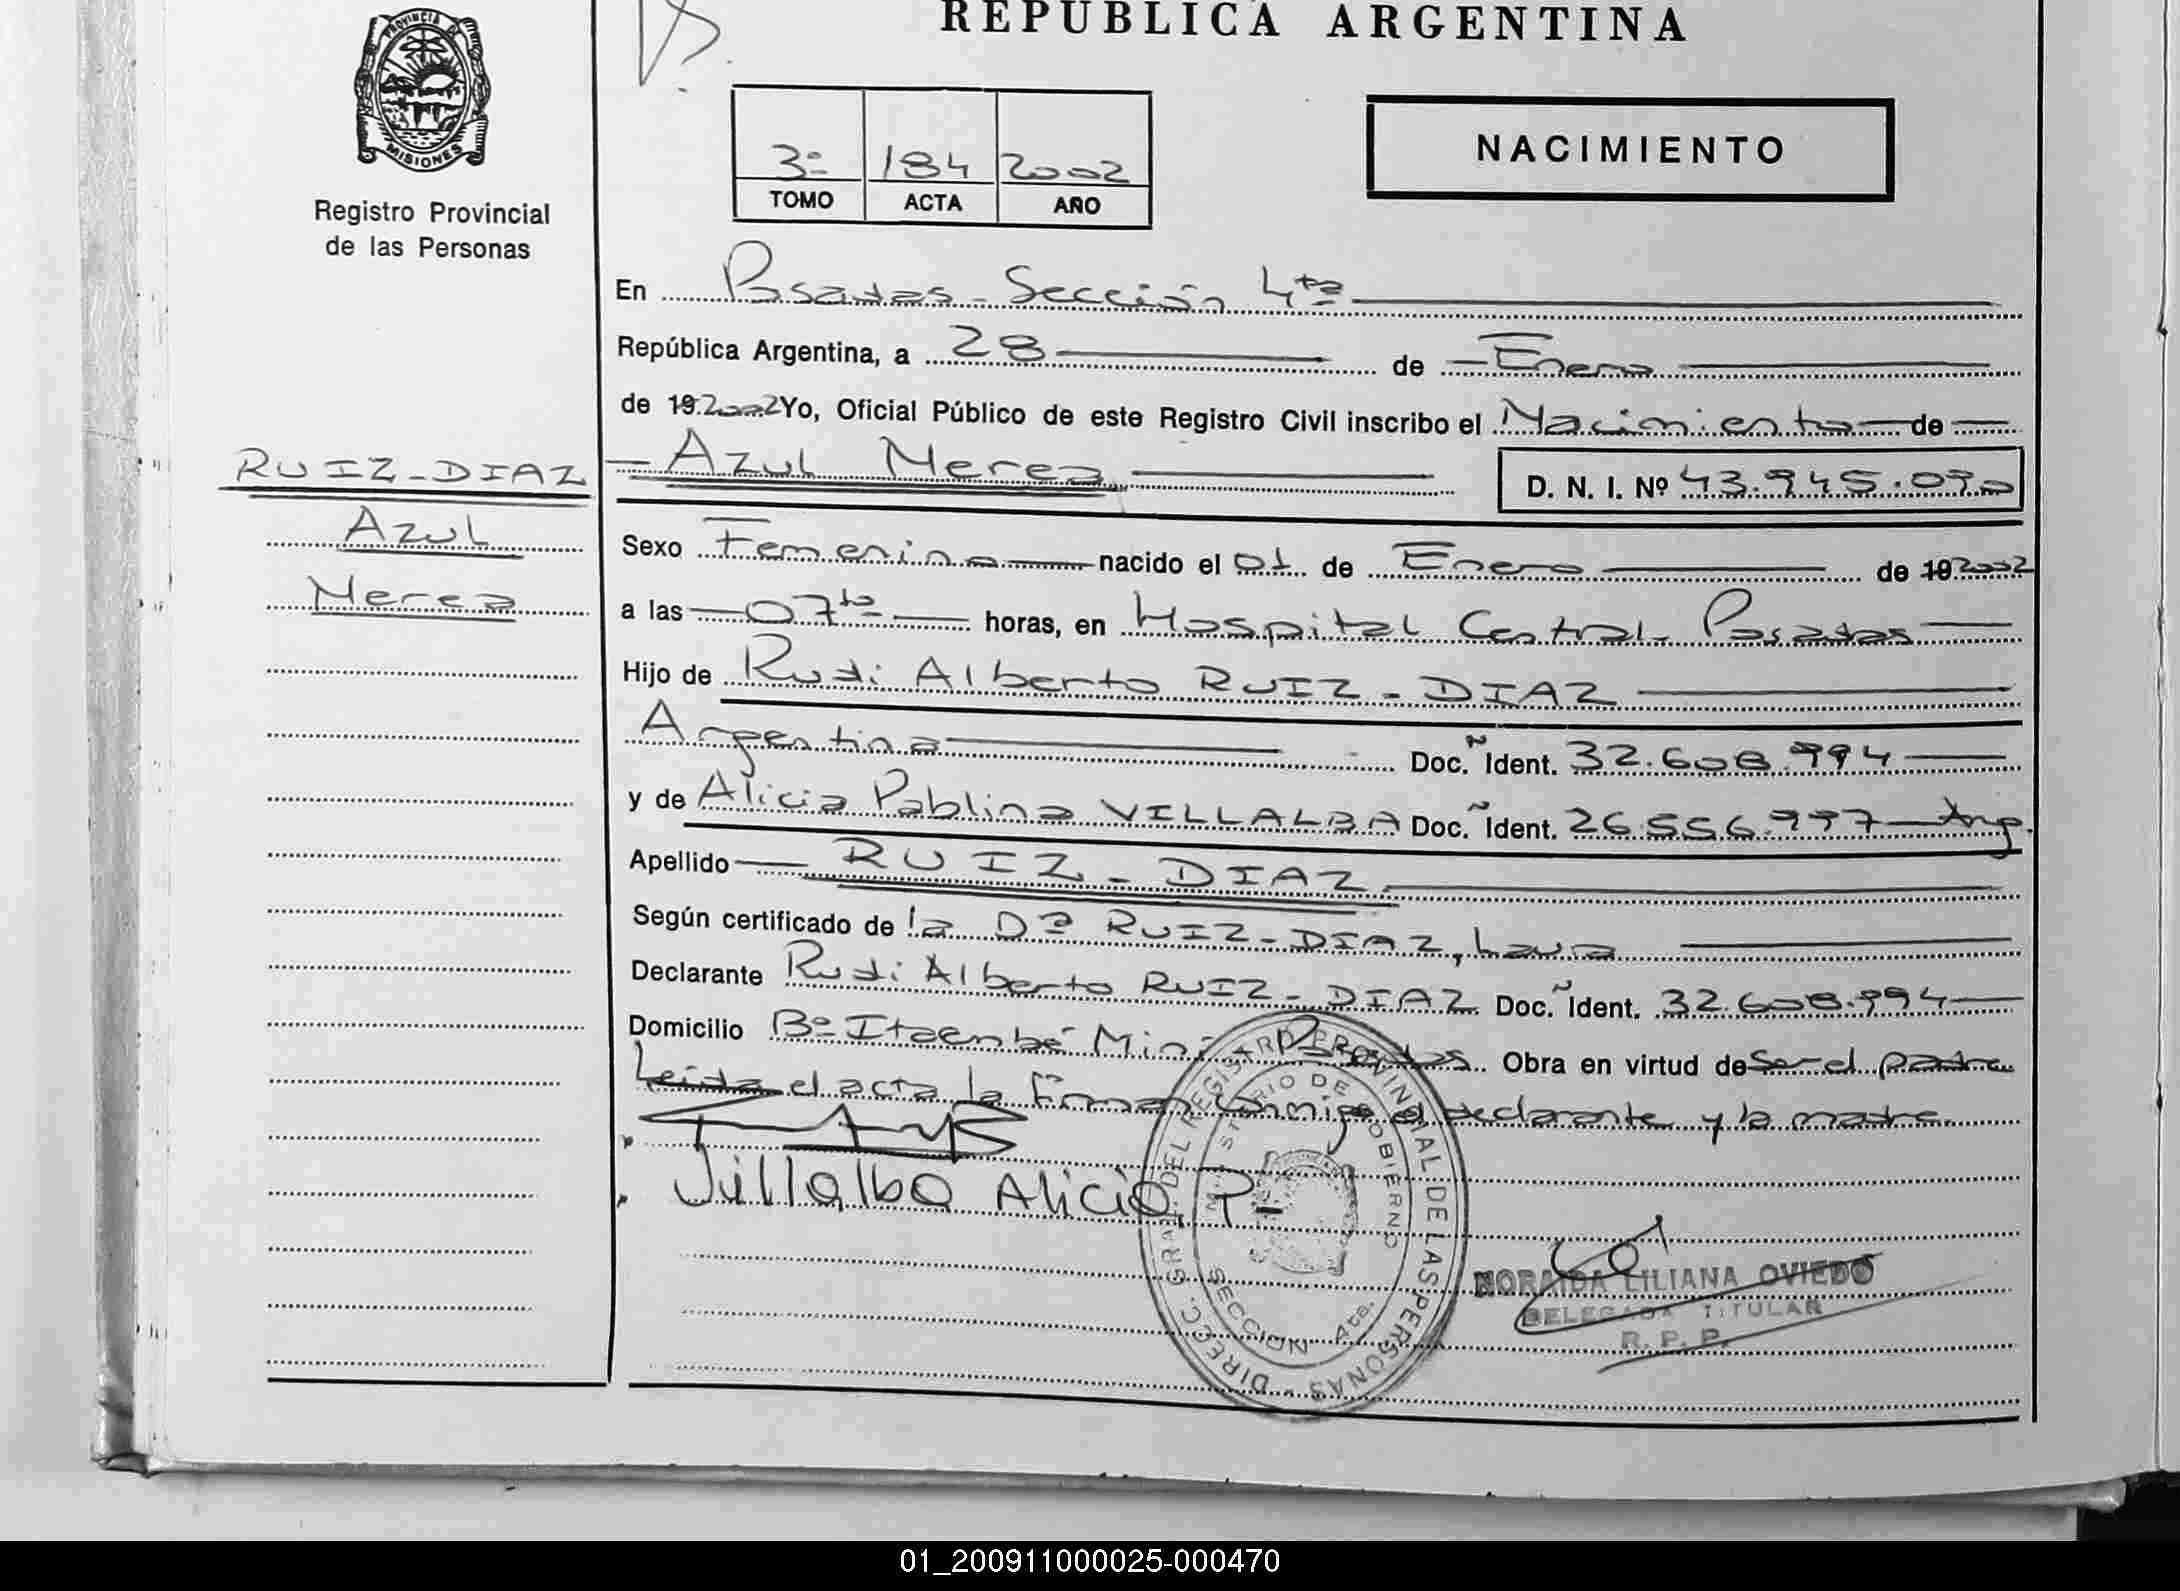 REPUBLICA ARGENTINA
PROVINCIA DE
MISIONES
Registro Provincial
de las Personas
3º 184 2002
TOMO ACTA AÑO
NACIMIENTO
En Posadas - Sección 4ta
República Argentina, a 28 de Enero
de 19 2002 Yo, Oficial Público de este Registro Civil inscribo el Nacimiento de
RUIZ-DIAZ
Azul
Nerea
Azul Nerea
D. N. I. Nº 43.945.090
Sexo Femenino nacido el 01 de Enero de 19 2002
a las 07 horas, en Hospital Central - Posadas
Hijo de Rudi Alberto RUIZ - DIAZ
Argentina Doc. Ident. 32.608.994
y de Alicia Pablina VILLALBA Doc. Ident. 26.556.997 Arg.
Apellido RUIZ - DIAZ
Según certificado de la Dª RUIZ-DIAZ, Laura
Declarante Rudi Alberto RUIZ - DIAZ Doc. Ident. 32.608.994
Domicilio Bº Itaembé Miní Posadas Obra en virtud de ser el padre
Leída el acta la firman conmigo el declarante y la madre
Villalba Alicia P-
DIRECC. GRAL. DEL REGISTRO PROVINCIAL DE LAS PERSONAS
MINISTERIO DE GOBIERNO
SECCION 4ta.
NORAIDA LILIANA OVIEDO
DELEGADA TITULAR
R. P. P.
01_200911000025-000470